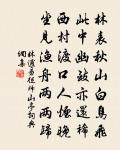 林表秋山白鳥飛
此中幽致亦還稀
西村渡口人煙晚
坐見漁舟兩兩歸
林逋易從師山亭詞典
網集